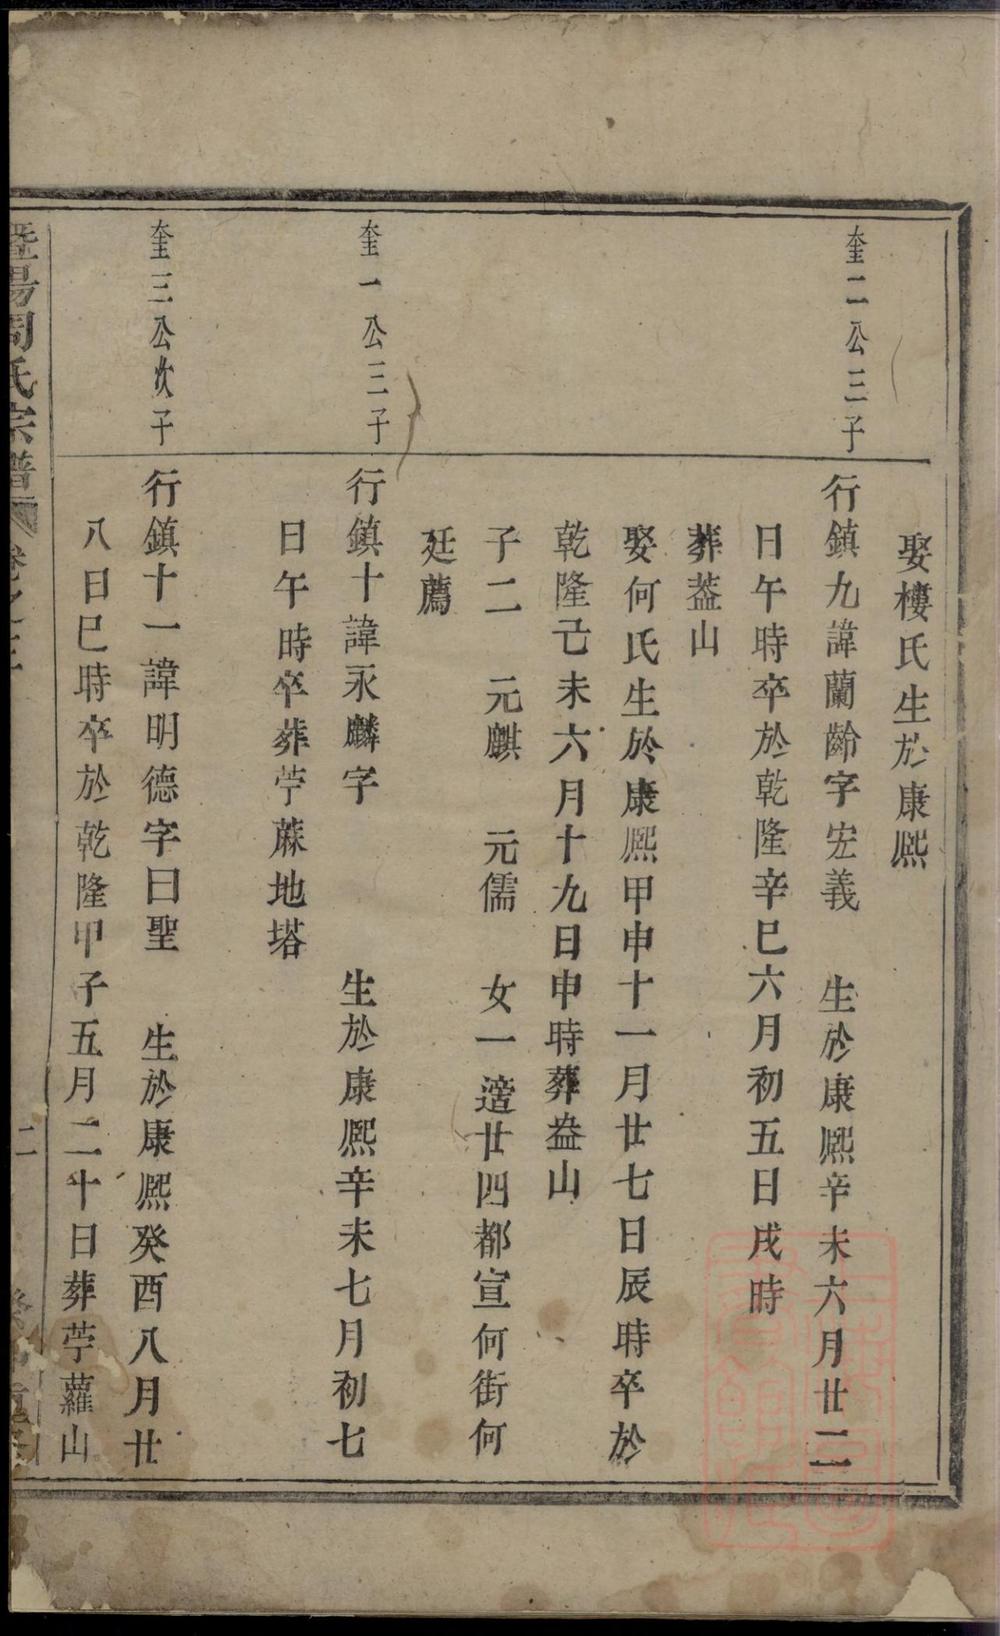 娶樓氏生於康熙
奎二公三子
行鎮九諱蘭齡字宏義 生於康熙辛未六月廿二
日午時卒於乾隆辛巳六月初五日戌時
葬葢山
娶何氏生於康熙甲申十一月廿七日辰時卒於
乾隆己未六月十九日申時葬葢山
子二 元麒 元儒 女一適廿四都宣何街何
廷薦
奎一公三子
行鎮十諱永麟字 生於康熙辛未七月初七
日午時卒葬苧蔴地塔
奎三公次子
行鎮十一諱明德字曰聖 生於康熙癸酉八月廿
八日巳時卒於乾隆甲子五月二十日葬苧蘿山
暨陽周氏宗譜 卷之三 二